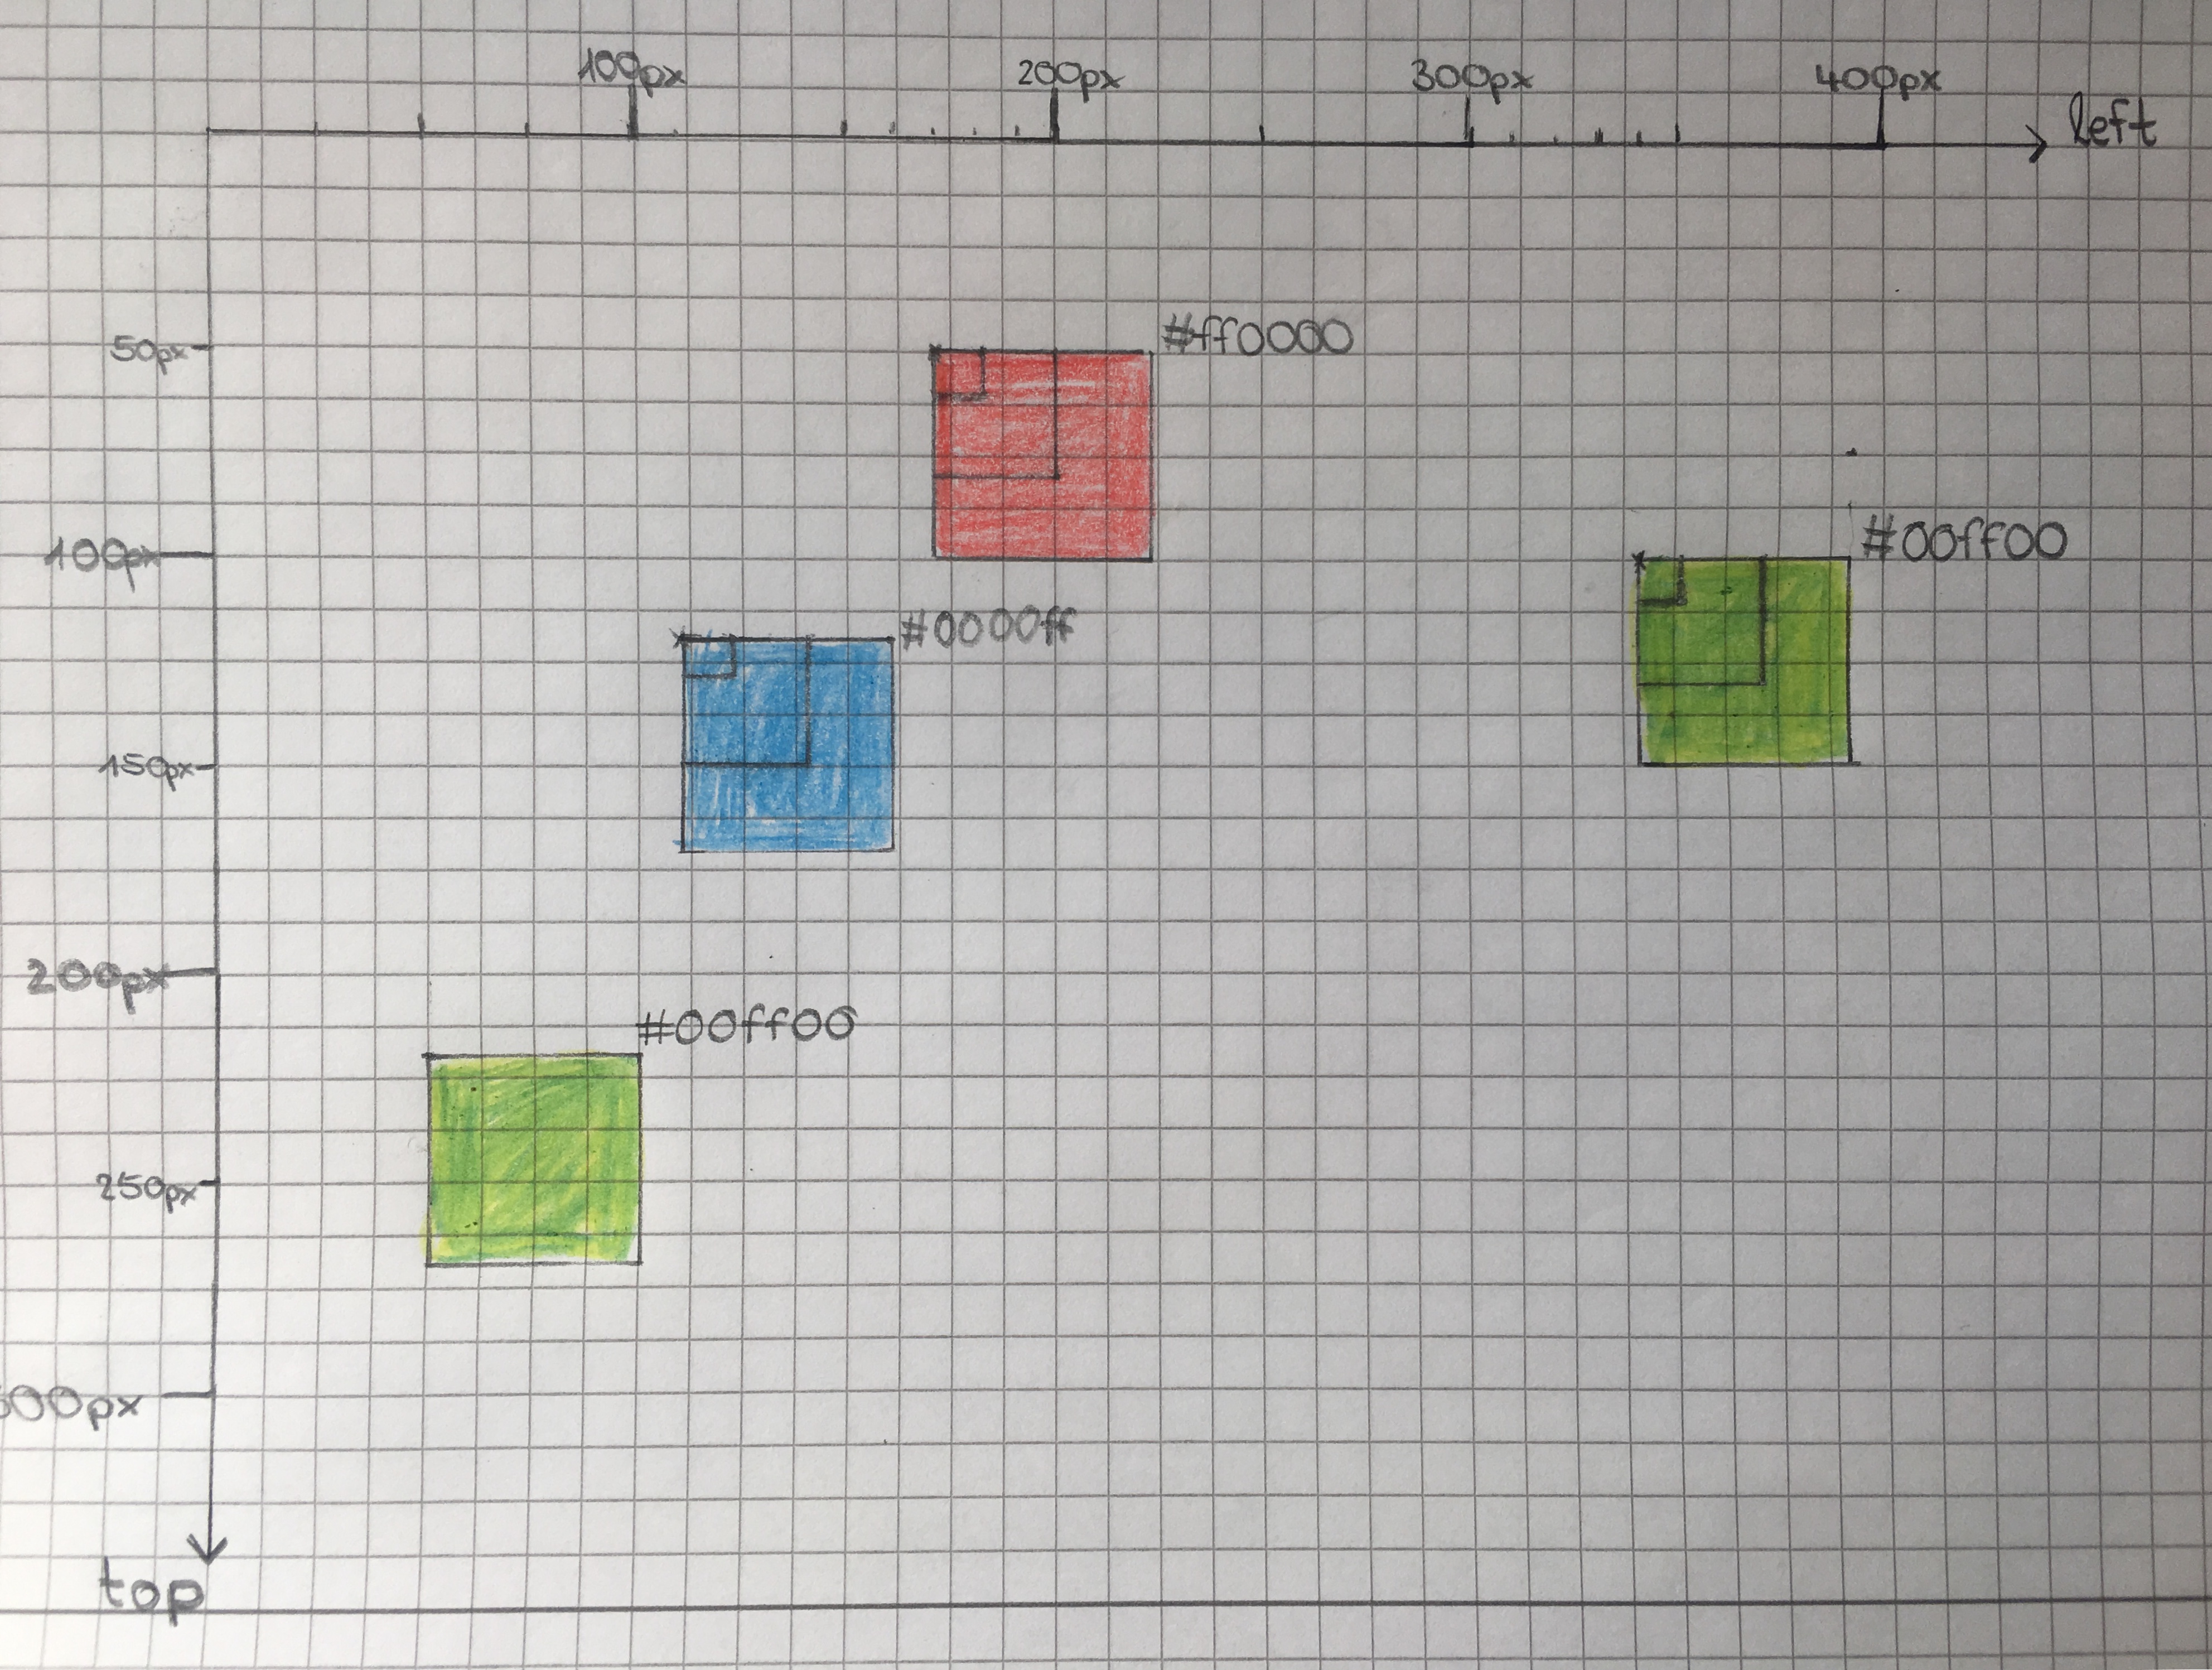 100px 200px 300px 400px
left
50px
#ff0000
100px
#00ff00
#0000ff
150px
200px
#00ff00
250px
00px
top